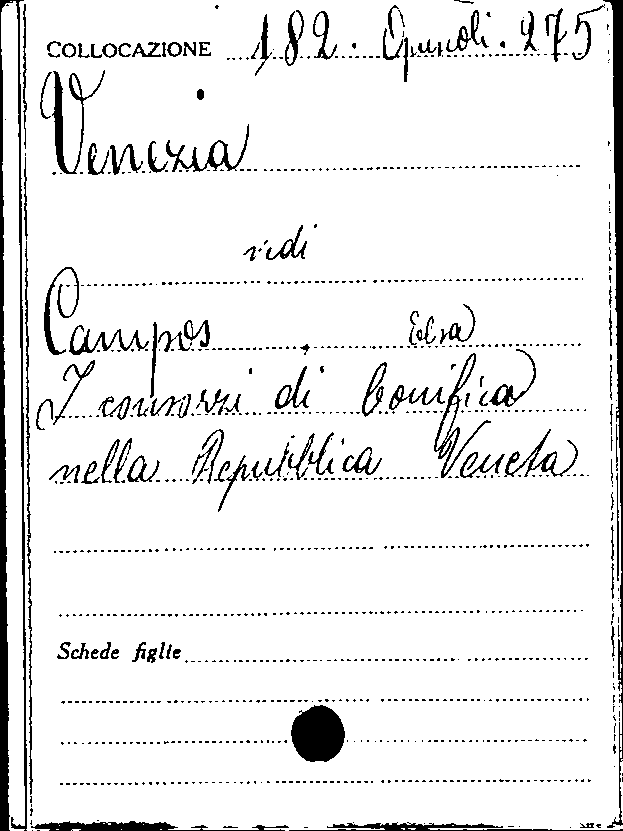 COLLOCAZIONE 182. Opuscoli. 275
Venezia
vedi
Campos, Elsa
I consorzi di bonifica
nella Repubblica Veneta
Schede figlie